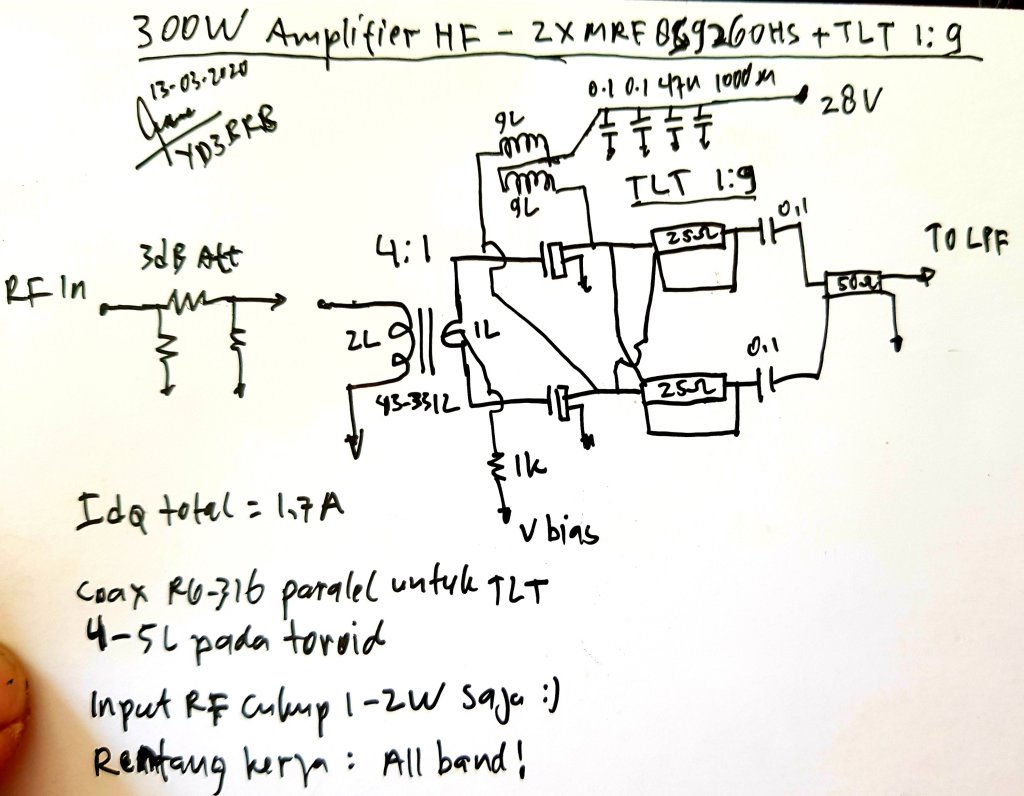 300W Amplifier HF - 2XMRF 9260HS + TLT 1:9
13-03-2020
YD3BRB
0.1 0.1 47u 1000u
28V
9L
9L
TLT 1:9
25Ω
0,1
TO LPF
50Ω
RF In
3dB Att
4:1
2L
1L
43-3312
25Ω
0,1
1k
V bias
Idq total = 1,7A
coax RG-316 paralel untuk TLT
4-5L pada toroid
Input RF cukup 1-2W saja :)
Rentang kerja : All band!